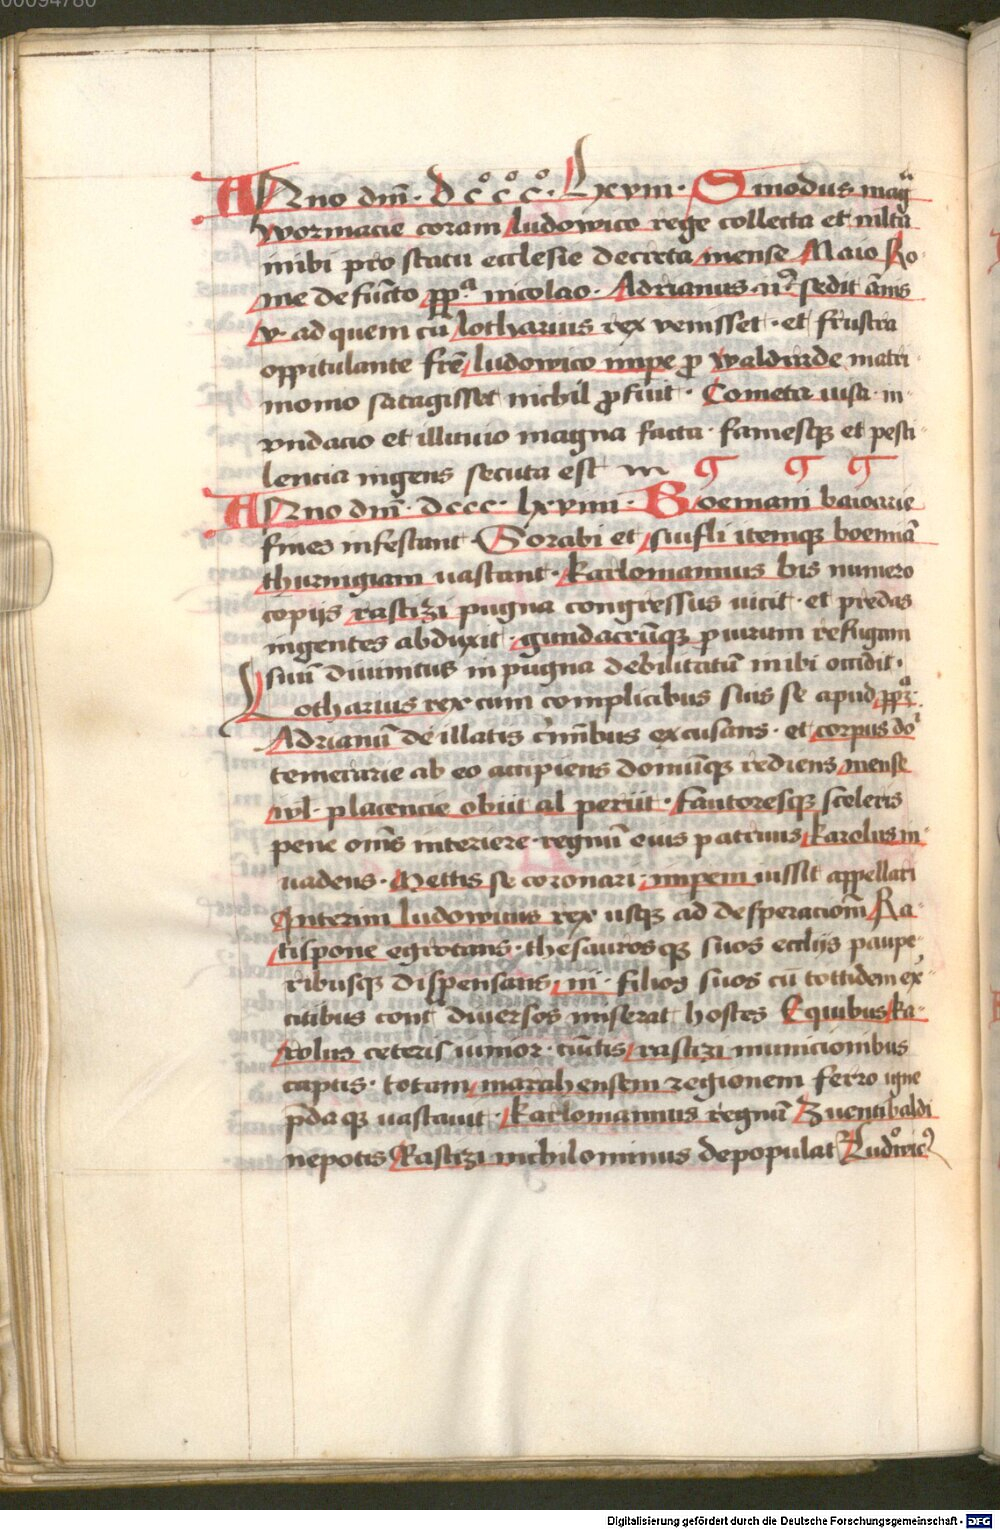 00094780
ANno dm̅. dcͦcͦcͦ. lxvııı. Sinodus magͣ
wormacie coram ludowico rege collecta et mltͣa
inibi pro statu ecclesie decreta mense Maio Ro-
me defuncto pp̅.ͣ nicolao. Adrianus. ıı.ꝰ sedit a̅nis
v. ad quem cu̅ lotharius rex venisset. et frustra
oppitulante fr̅e ludowico impe ꝓ waldrade matri-
monio satagisset nichil ꝓfuit. Cometa uisa. in-
vndacio et illuuio magna facta. famesqꝫ et pesti-
lencia ingens secuta est
ANno dm̅. dccc. lxvıııı. Boemani baioarie
fines infestant. Sorabi et siusli itemqꝫ boemia̅
thuringiam uastant. karlomannus bis numero
copijs rastizi pugna congressus uicit. et predas
ingentes abduxit. gundacru̅qꝫ ꝑiurum refugam
suu̅ diuinitus in pugna debilitatu̅ inibi occidit.
Lotharius rex cum complicibus suis se apud pp̅.ͣ
Adrianu̅ de illatis cri̅nibus excusans. et corpus doͥ
temerarie ab eo accipiens domu̅qꝫ rediens mense
iul. placencie obiit al periit. fautoresqꝫ sceleris
pene om̅s interiere. regnu̅ eius patruus karolus in-
uadens. Mettis se coronari. impem iussit appellari
Interim ludowicus rex usqꝫ ad desperacio̅m Ra-
tispone egrotans. thesaurosqꝫ suos eccl̅ijs paupe-
ribusqꝫ dispensans. ııı. filios suos cu̅ tottidem ex̉-
citibus cont̉ diuersos miserat hostes Equibus ka-
rolus ceteris iunior. cu̅ctis rastizi municionibus
captis. totam marahensem regionem ferro igne
p̅daqꝫ uastauit. karlomannus regnu̅ Zuentibaldi
nepotis Rastizi nichilominus depopulat Ludoͦwicꝰ
Digitalisierung gefördert durch die Deutsche Forschungsgemeinschaft - DFG